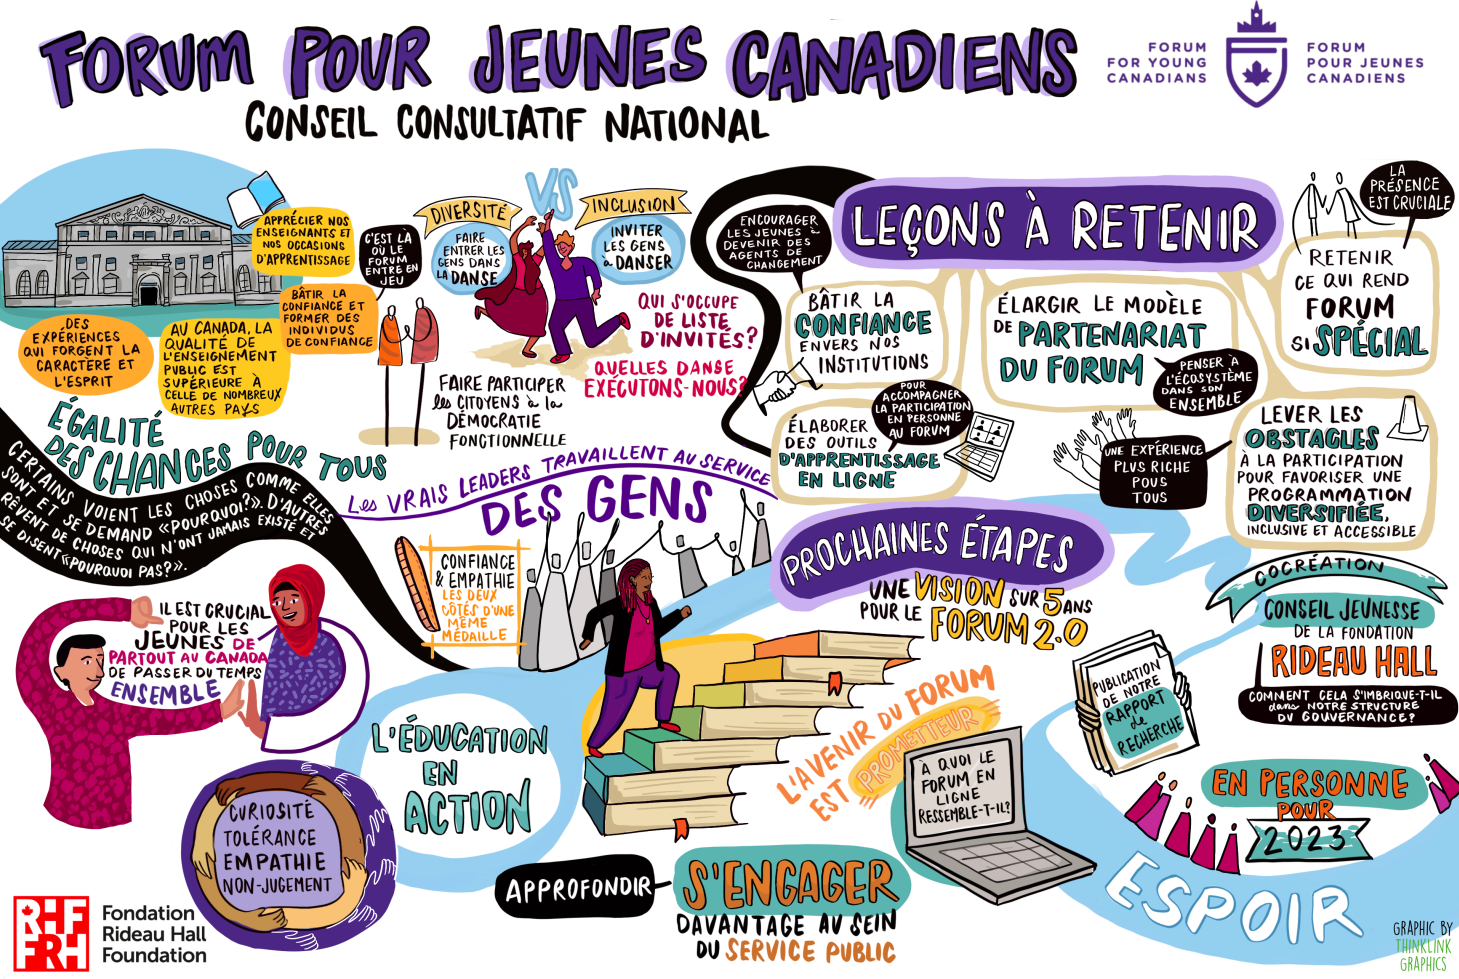 FORUM POUR JEUNES CANADIENS
CONSEIL CONSULTATIF NATIONAL
FORUM
FOR YOUNG
CANADIANS
FORUM
POUR JEUNES
CANADIENS
APPRÉCIER NOS
ENSEIGNANTS ET
NOS OCCASIONS
D'APPRENTISSAGE
C'EST LÀ
OÙ LE
FORUM
ENTRE EN
JEU
BÂTIR LA
CONFIANCE ET
FORMER DES
INDIVIDUS
DE CONFIANCE
DES
EXPÉRIENCES
QUI FORGENT LA
CARACTÈRE ET
L'ESPRIT
AU CANADA, LA
QUALITÉ DE
L'ENSEIGNEMENT
PUBLIC EST
SUPÉRIEURE À
CELLE DE NOMBREUX
AUTRES PAYS
ÉGALITÉ
DES CHANCES POUR TOUS
DIVERSITÉ
VS
INCLUSION
FAIRE
ENTRER LES
GENS DANS
LA DANSE
INVITER
LES GENS
à DANSER
QUI S'OCCUPE
DE LISTE
D'INVITÉS?
QUELLES DANSE
EXÉCUTONS-NOUS?
FAIRE PARTICIPER
les CITOYENS à la
DÉMOCRATIE
FONCTIONNELLE
CERTAINS VOIENT LES CHOSES COMME ELLES
SONT ET SE DEMAND «POURQUOI?». D'AUTRES
RÊVENT DE CHOSES QUI N'ONT JAMAIS EXISTÉ ET
SE DISENT «POURQUOI PAS?».
Les VRAIS LEADERS TRAVAILLENT AU SERVICE
DES GENS
CONFIANCE
& EMPATHIE
LES DEUX
CÔTÉS D'UNE
MÊME
MÉDAILLE
IL EST CRUCIAL
POUR LES
JEUNES DE
PARTOUT AU CANADA
DE PASSER DU TEMPS
ENSEMBLE
CURIOSITÉ
TOLÉRANCE
EMPATHIE
NON-JUGEMENT
L'ÉDUCATION
EN
ACTION
LEÇONS À RETENIR
ENCOURAGER
LES JEUNES à
DEVENIR DES
AGENTS DE
CHANGEMENT
BÂTIR LA
CONFIANCE
ENVERS NOS
INSTITUTIONS
ÉLARGIR LE MODÈLE
DE PARTENARIAT
DU FORUM
PENSER À
L'ÉCOSYSTÈME
DANS SON
ENSEMBLE
LA
PRÉSENCE
EST CRUCIALE
RETENIR
CE QUI REND
FORUM
SI SPÉCIAL
POUR
ACCOMPAGNER
LA PARTICIPATION
EN PERSONNE
AU FORUM
ÉLABORER
DES OUTILS
D'APPRENTISSAGE
EN LIGNE
UNE EXPÉRIENCE
PLUS RICHE
POUS
TOUS
LEVER LES
OBSTACLES
À LA PARTICIPATION
POUR FAVORISER UNE
PROGRAMMATION
DIVERSIFIÉE,
INCLUSIVE ET ACCESSIBLE
PROCHAINES ÉTAPES
UNE VISION SUR 5 ANS
POUR LE FORUM 2.0
COCRÉATION
CONSEIL JEUNESSE
DE LA FONDATION
RIDEAU HALL
COMMENT CELA S'IMBRIQUE-T-IL
dans NOTRE STRUCTURE
DU GOUVERNANCE?
PUBLICATION
DE NOTRE
RAPPORT
de
RECHERCHE
L'AVENIR DU FORUM
EST PROMETTEUR
À QUOI LE
FORUM EN
LIGNE
RESSEMBLE-T-IL?
EN PERSONNE
POUR
2023
ESPOIR
APPROFONDIR
S'ENGAGER
DAVANTAGE AU SEIN
DU SERVICE PUBLIC
RHF
FRH
Fondation
Rideau Hall
Foundation
GRAPHIC BY
THINKLINK
GRAPHICS